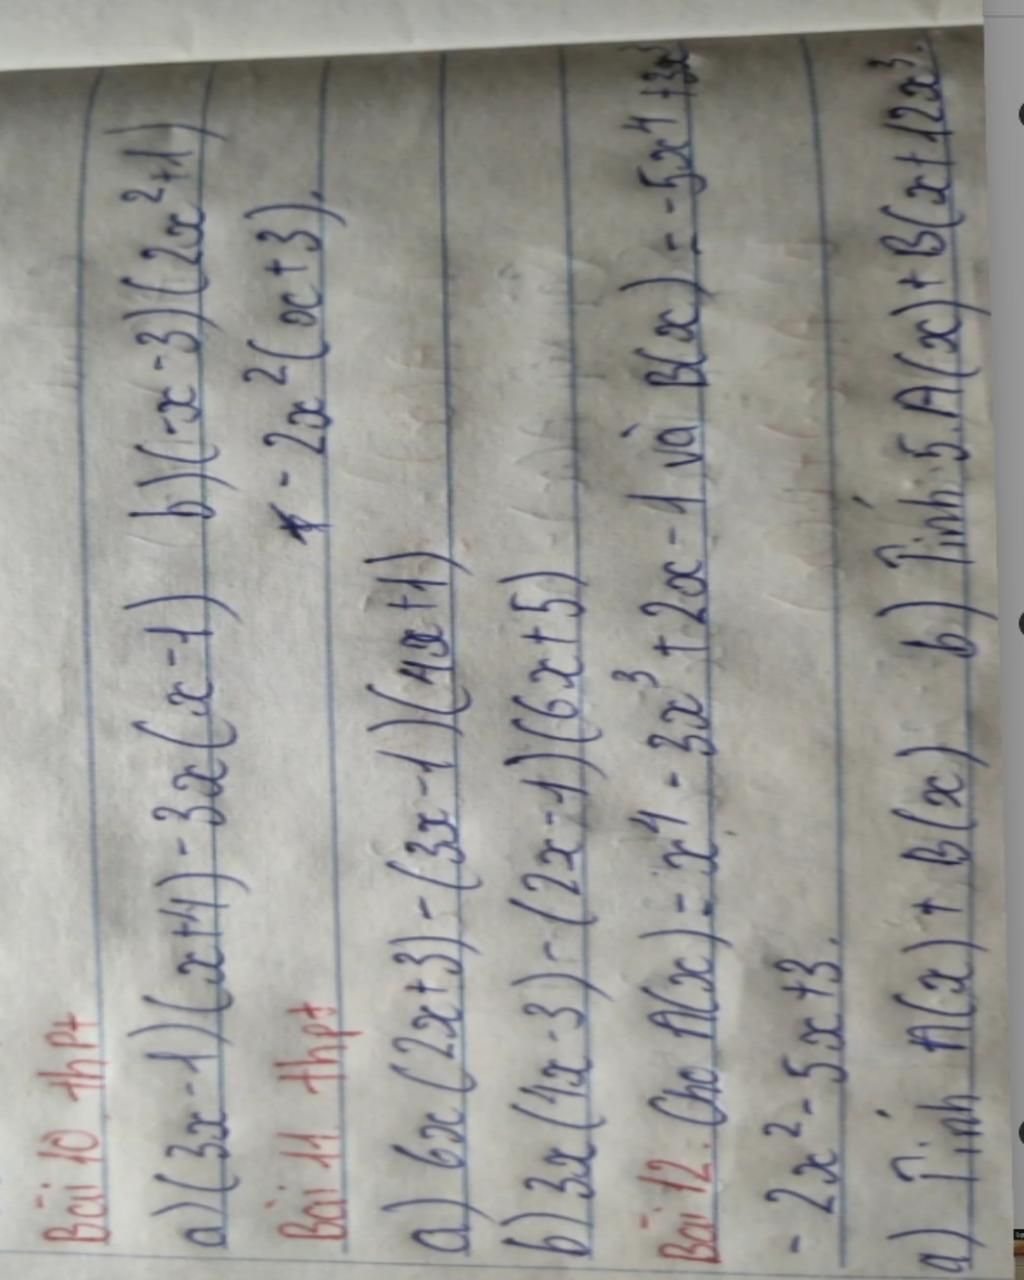 Bài 10 thpt
a) (3x-1)(x+4)-3x(x-1) b) (-x-3)(2x²+1)
- 2x²(x+3).
Bài 11 thpt
a) 6x(2x+3)-(3x-1)(4x+1)
b) 3x(4x-3)-(2x-1)(6x+5)
Bài 12. Cho A(x)=x⁴-3x³+2x-1 và B(x)=-5x⁴+3x³
- 2x²-5x+3.
a) Tính A(x)+B(x) b) Tính 5.A(x)+B(x+12x³.